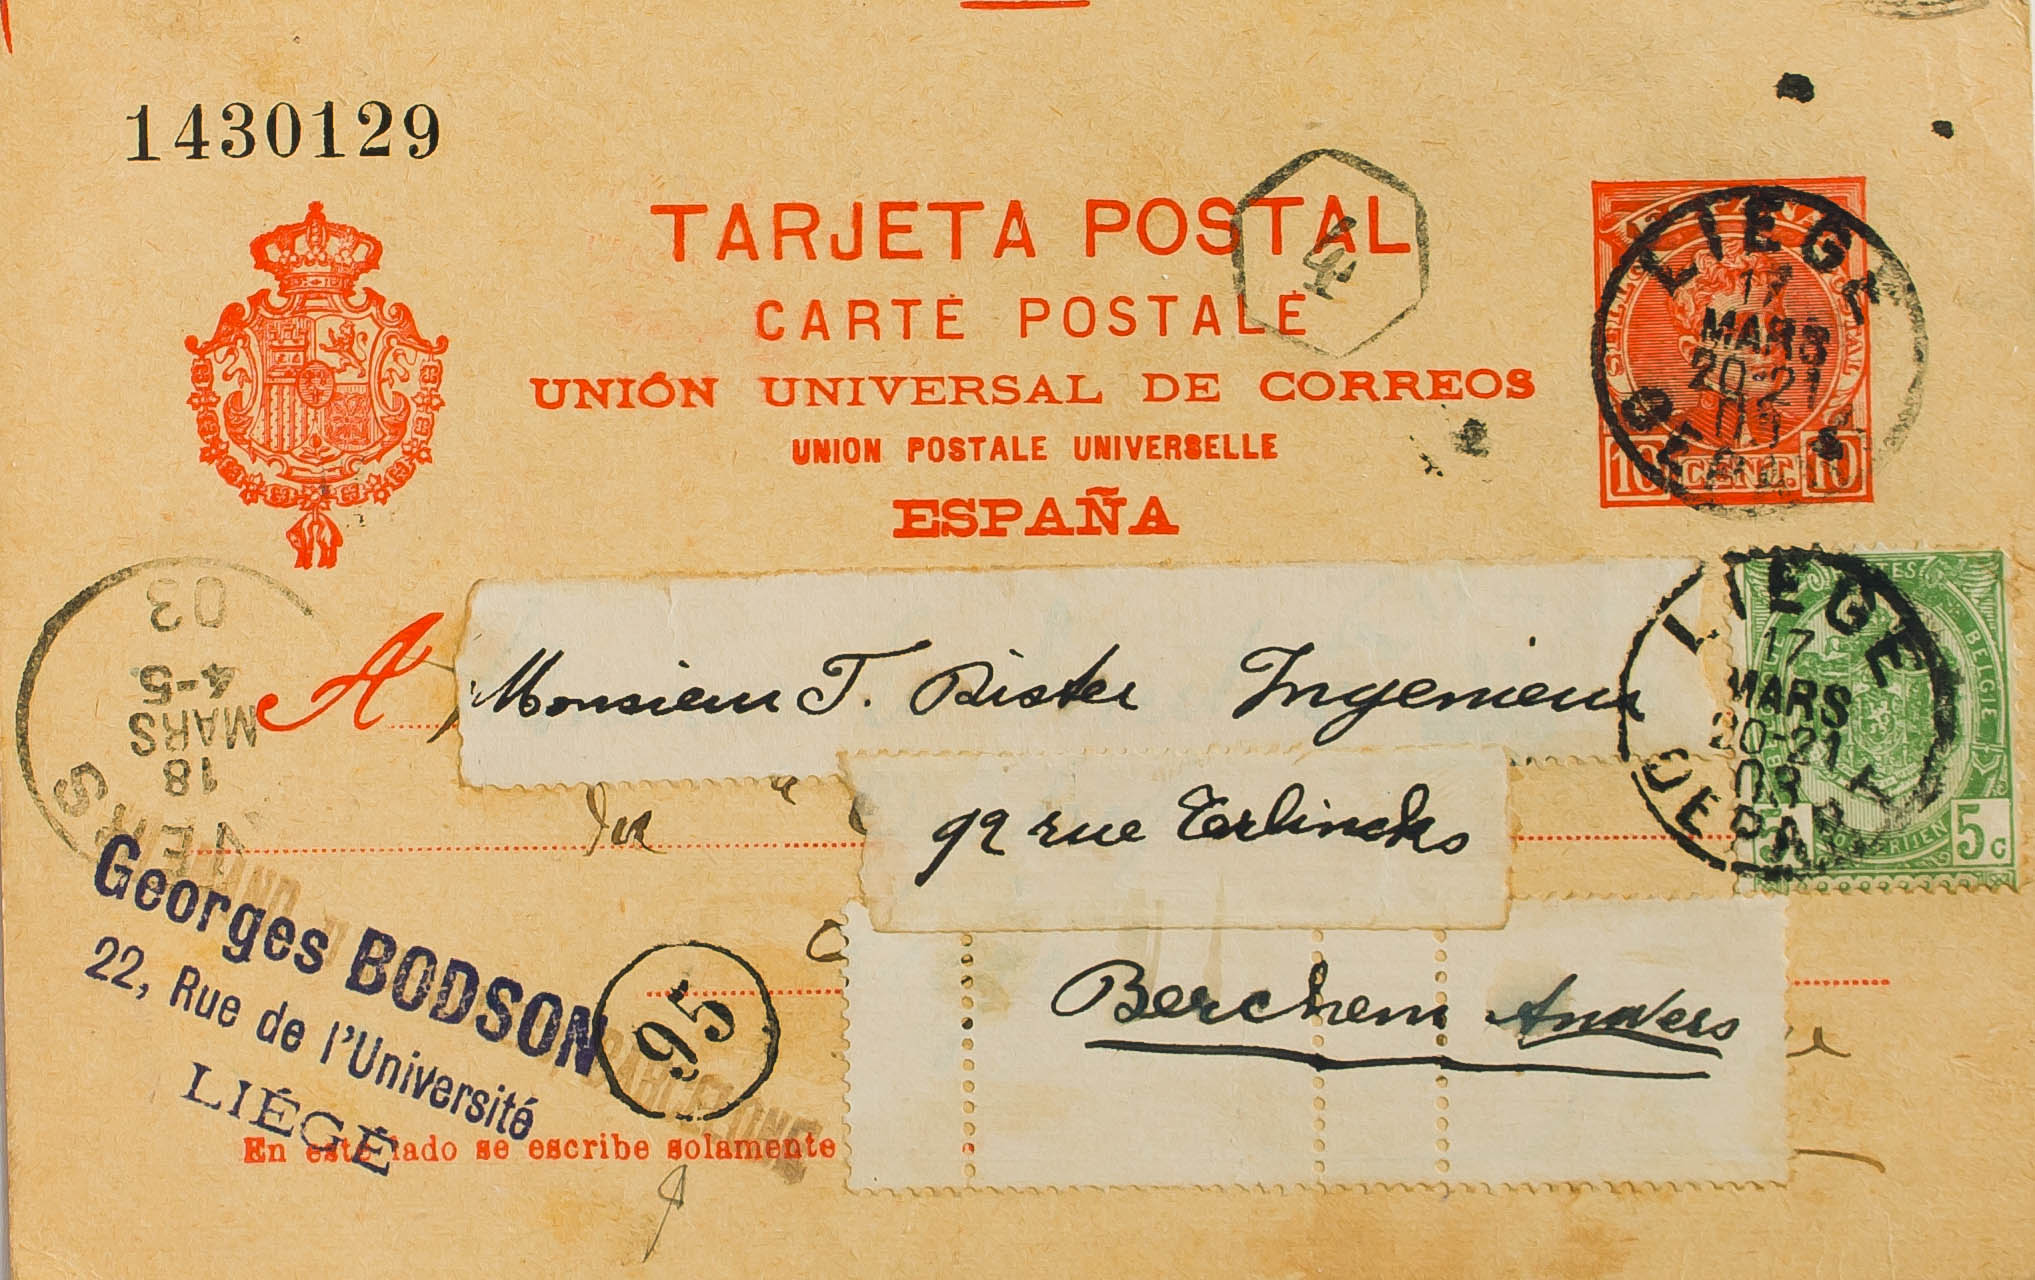 1430129
TARJETA POSTAL
4
CARTE POSTALE
UNIÓN UNIVERSAL DE CORREOS
UNION POSTALE UNIVERSELLE
ESPAÑA
10 CENT. 10
LIEGE
17
MARS
20-21
03
DEPART
LIEGE
17
MARS
20-21
03
DEPART
BELGIE
5 c
03
4-5
MARS
18
A Monsieur T. Bister Ingenieur
92 rue Terlincks
Berchem Anvers
Georges BODSON
22, Rue de l'Université
LIÉGE
95
BARCELONE
En este lado se escribe solamente